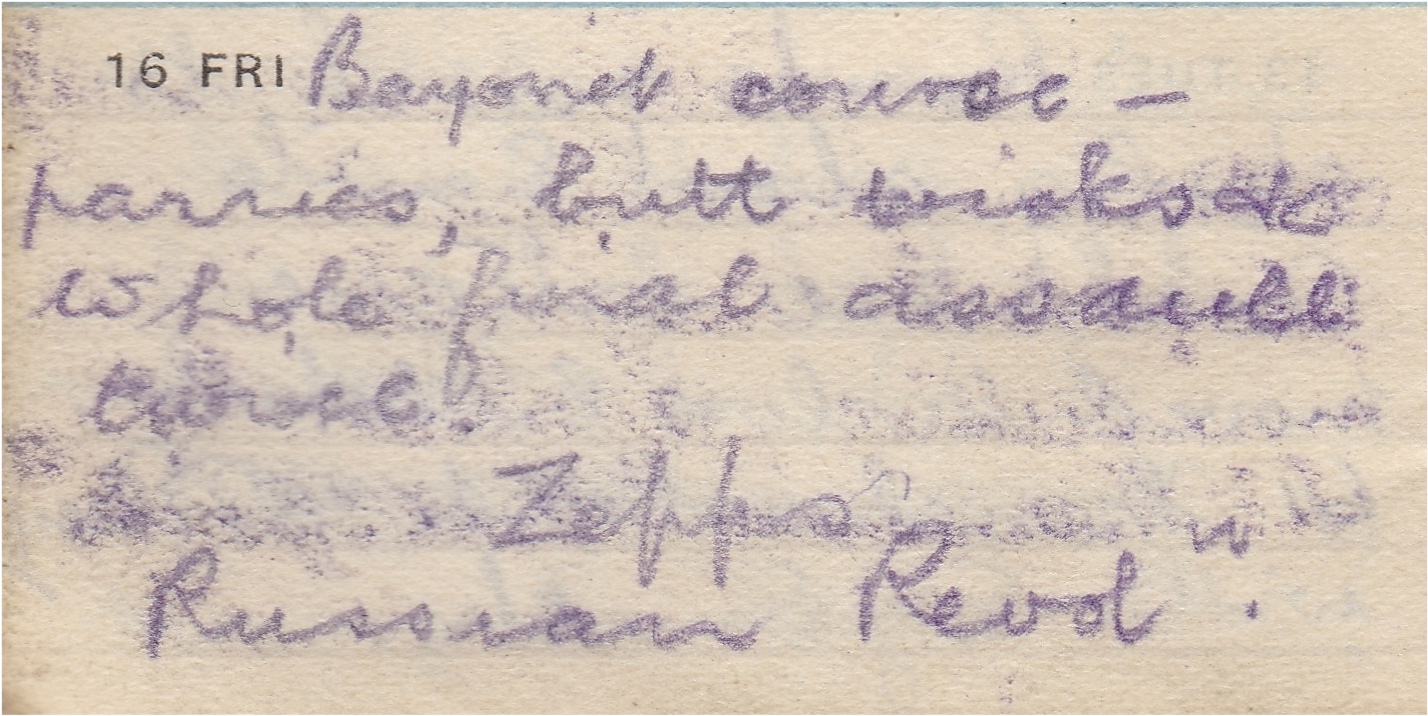 16 FRI Bayonet course –
parries, butt tricks &c
whole final assault
course.
Zepps
Russian Revol n.